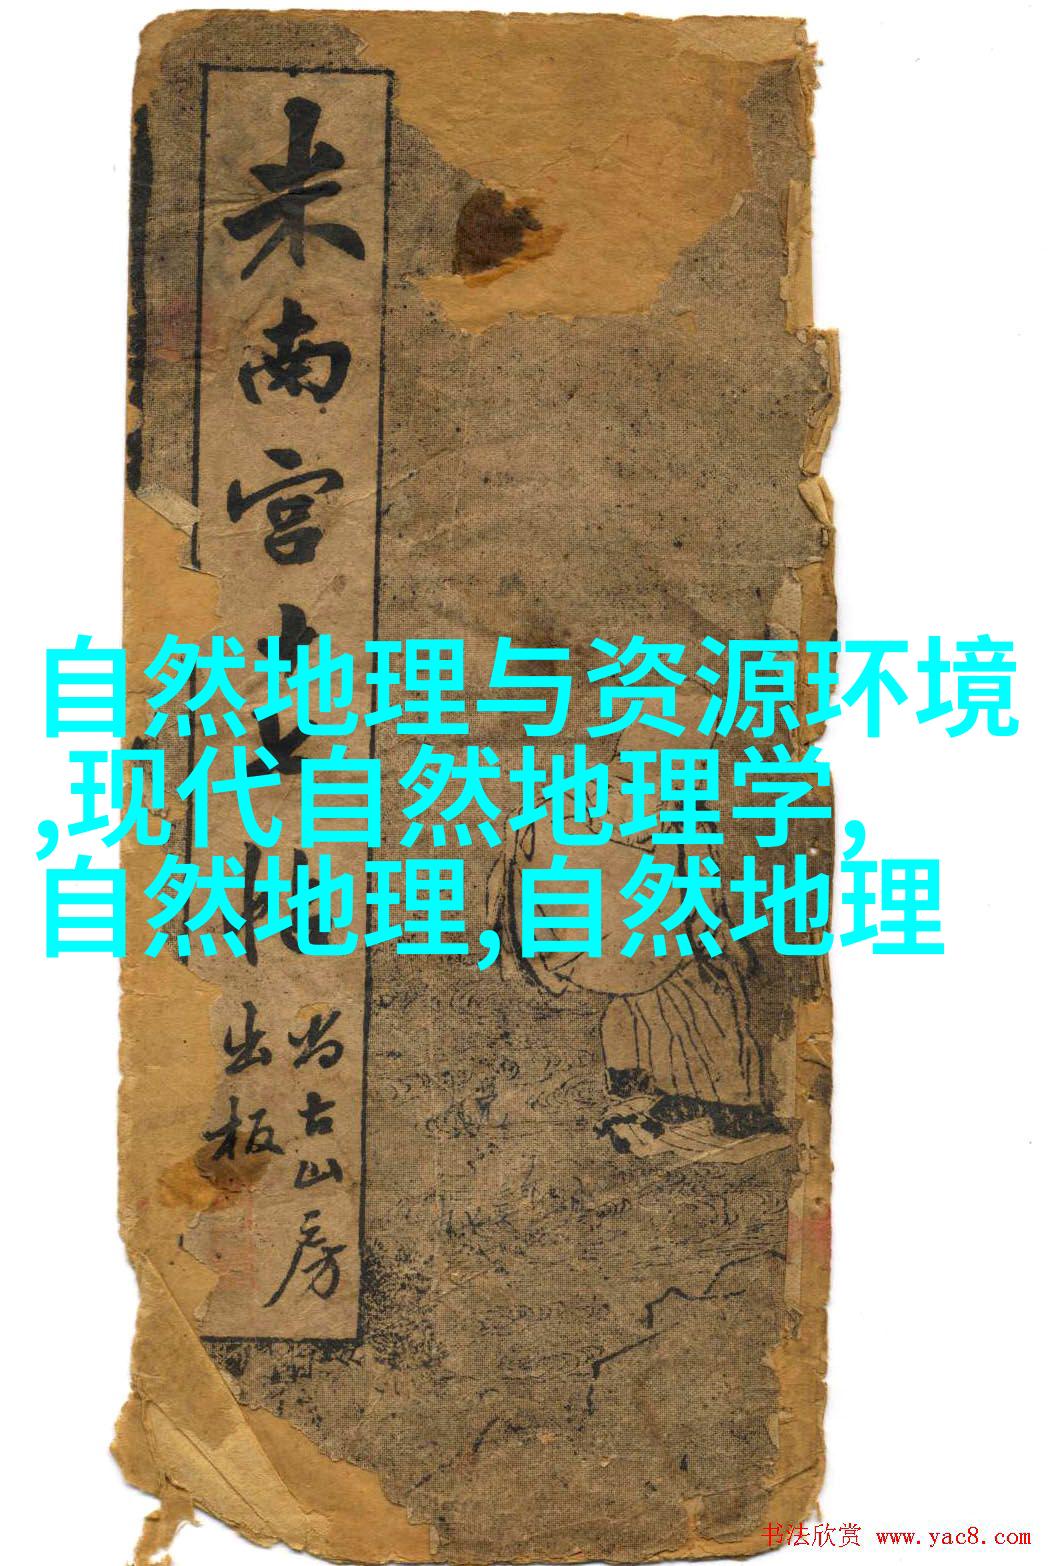 自然地理与资源环境
,现代自然地理学,
自然地理,自然地理
米南宫
尚古山房
出板
书法欣赏 www.yac8.com